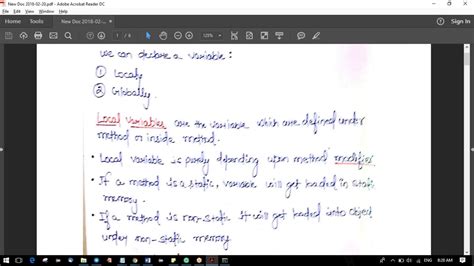 New Doc 2018-02-20.pdf - Adobe Acrobat Reader DC
File Edit View Window Help
Home Tools New Doc 2018-02-... × Sign In
1 / 8 125% Share
we can declare a variable :
① Locally
② Globally.
Local variables are the variable which are defined under
method or inside method.
• Local variable is purely depending upon method modifier
• If a method is a static, variable will get loaded in static
memory.
• If a method is non-static it will get loaded into object
under non-static memory
ENG 8:28 AM